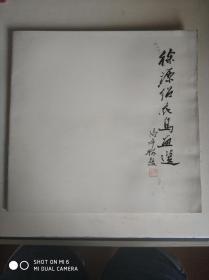 徐源绍花鸟画选
SHOT ON MI 6
MI DUAL CAMERA